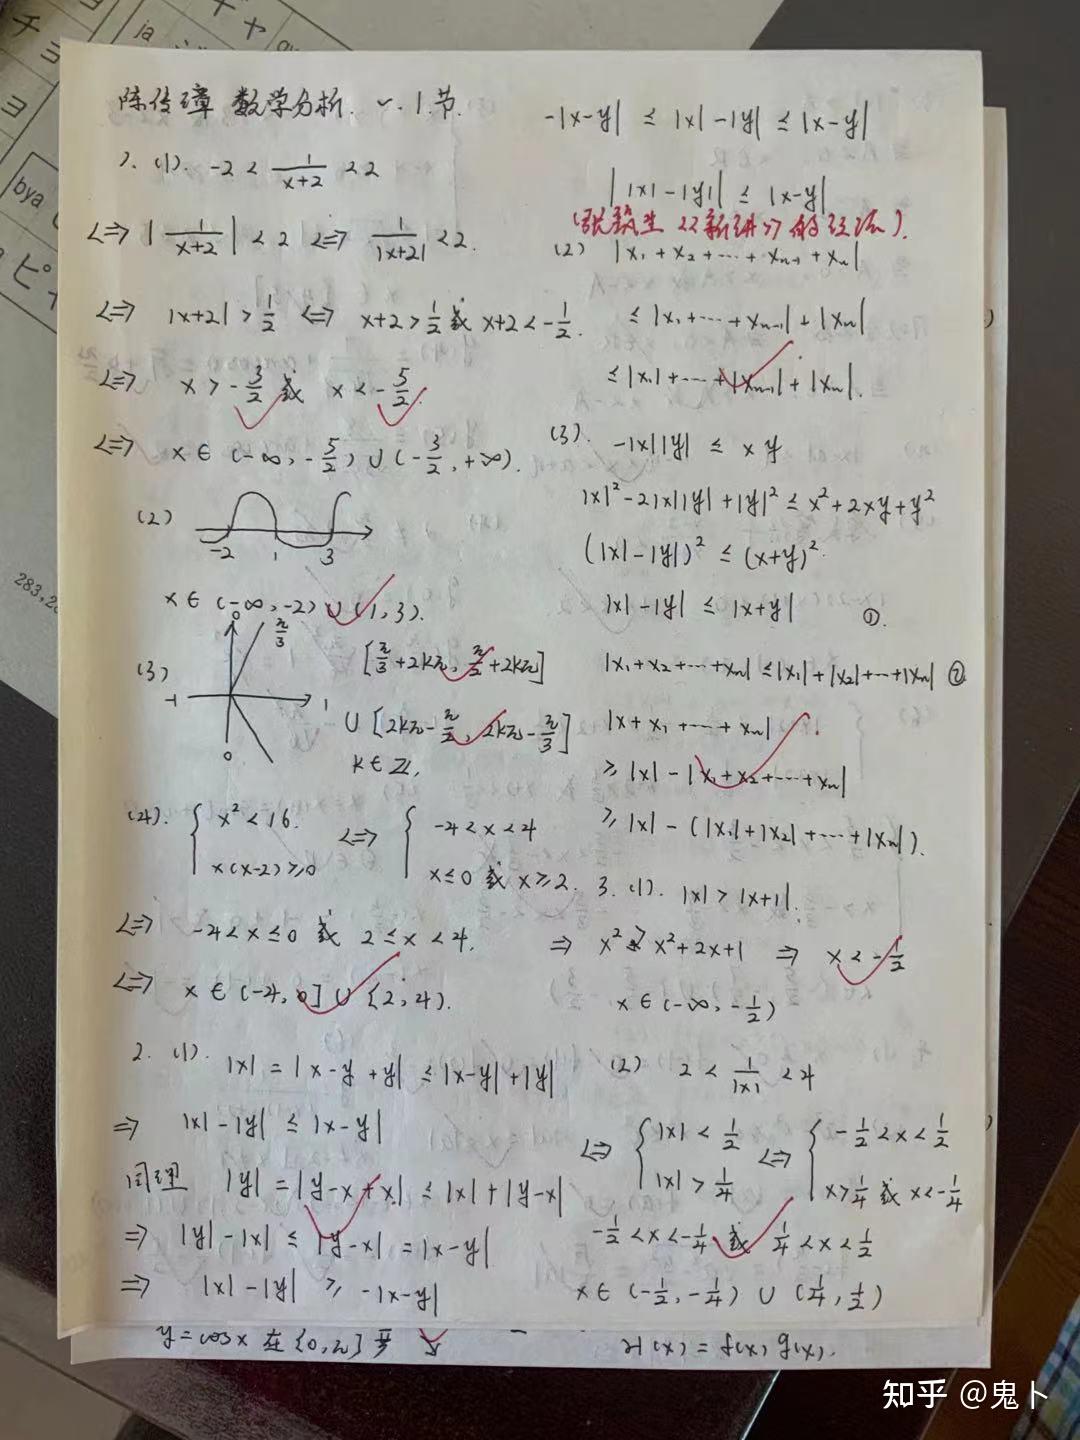 陈传璋 数学分析. 一. 1.节.
1. (1). -2 < 1/(x+2) < 2
<=> |1/(x+2)| < 2 <=> 1/|x+2| < 2.
<=> |x+2| > 1/2 <=> x+2 > 1/2 或 x+2 < -1/2.
<=> x > -3/2 或 x < -5/2.
<=> x ∈ (-∞, -5/2) ∪ (-3/2, +∞).
(2)
-2 1 3
x ∈ (-∞, -2) ∪ (1, 3).
(3)
0 π/3
-1 1
0
[π/3 + 2kπ, π/2 + 2kπ]
∪ [2kπ - π/2, 2kπ - π/3]
k ∈ Z.
(4). { x² < 16. x(x-2) ≥ 0 <=> { -4 < x < 4 x ≤ 0 或 x ≥ 2.
<=> -4 < x ≤ 0 或 2 ≤ x < 4.
<=> x ∈ (-4, 0] ∪ [2, 4).
2. (1). |x| = |x-y+y| ≤ |x-y| + |y|
=> |x| - |y| ≤ |x-y|
同理 |y| = |y-x+x| ≤ |x| + |y-x|
=> |y| - |x| ≤ |y-x| = |x-y|
=> |x| - |y| ≥ -|x-y|
-|x-y| ≤ |x| - |y| ≤ |x-y|
||x| - |y|| ≤ |x-y|
(张筑生《新讲》的证法).
(2) |x₁ + x₂ + ··· + xₙ₋₁ + xₙ|
≤ |x₁ + ··· + xₙ₋₁| + |xₙ|
≤ |x₁| + ··· + |xₙ₋₁| + |xₙ|.
(3). -|x||y| ≤ xy
|x|² - 2|x||y| + |y|² ≤ x² + 2xy + y²
(|x| - |y|)² ≤ (x+y)².
|x| - |y| ≤ |x+y| ①.
|x₁ + x₂ + ··· + xₙ| ≤ |x₁| + |x₂| + ··· + |xₙ| ②
|x + x₁ + ··· + xₙ|
≥ |x| - |x₁ + x₂ + ··· + xₙ|
≥ |x| - (|x₁| + |x₂| + ··· + |xₙ|).
3. (1). |x| > |x+1|.
=> x² > x² + 2x + 1 => x < -1/2
x ∈ (-∞, -1/2)
(2) 2 < 1/|x| < 4
<=> { |x| < 1/2 |x| > 1/4 <=> { -1/2 < x < 1/2 x > 1/4 或 x < -1/4
-1/2 < x < -1/4 或 1/4 < x < 1/2
x ∈ (-1/2, -1/4) ∪ (1/4, 1/2)
y = cosx 在 [0, π] 严
H(x) = f(x) g(x).
ja
bya
ピ
チ
ヨ
283,2
知乎 @鬼卜